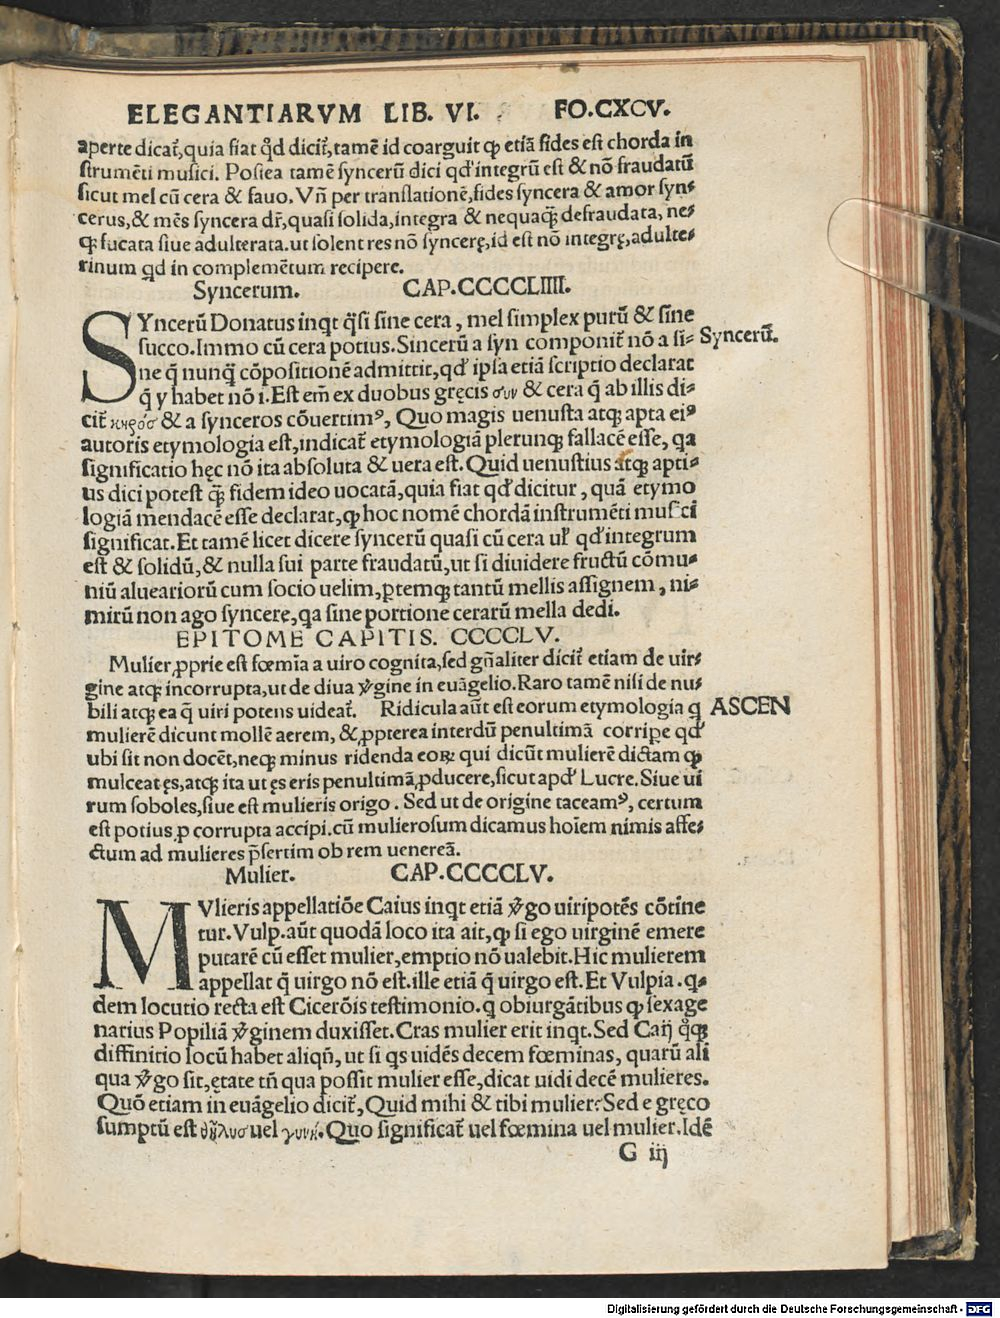 ELEGANTIARVM LIB. VI. FO.CXCV.
aperte dicat̃,quia fiat qđ dicit̃,tamẽ id coarguit ꝙ etiã fides est chorda in
strumẽti musici. Postea tamẽ syncerũ dici qđ integrũ est & nõ fraudatũ
sicut mel cũ cera & fauo. Vñ per translationẽ,fides syncera & amor syn-
cerus,& mẽs syncera dr̃,quasi solida,integra & nequaꝗ̃ defraudata, ne-
qꝫ fucata siue adulterata.ut solent res nõ syncerę,id est nõ integrę,adulte-
rinum qd in complemẽtum recipere.
Syncerum. CAP.CCCCLIIII.
SYncerũ Donatus inqt q̃si sine cera, mel simplex purũ & sine
succo.Immo cũ cera potius.Sincerũ a syn componit̃ nõ a si-
Syncerũ.
ne q̃ nunq̃ cõpositionẽ admittit,qđ ipsa etiã scriptio declarat
q̃ y habet nõ i.Est em̃ ex duobus gręcis συν & cera q̃ ab illis di-
cit̃ κηρόσ & a synceros cõuertimꝰ, Quo magis uenusta atqꝫ apta eiꝰ
autoris etymologia est,indicat̃ etymologiã plerunqꝫ fallacẽ esse, qa
significatio hęc nõ ita absoluta & uera est.Quid uenustius atqꝫ apti-
us dici potest ꝗ̃ fidem ideo uocatã,quia fiat qđ dicitur, quã etymo
logiã mendacẽ esse declarat,ꝙ hoc nomẽ chordã instrumẽti musici
significat.Et tamẽ licet dicere syncerũ quasi cũ cera ul̃ qđ integrum
est & solidũ,& nulla sui parte fraudatũ,ut si diuidere fructũ cõmu-
niũ alueariorũ cum socio uelim,ꝑtemqꝫ tantũ mellis assignem, ni-
mirũ non ago syncere,qa sine portione cerarũ mella dedi.
EPITOME CAPITIS. CCCCLV.
Mulier ꝓprie est fœmĩa a uiro cognita,sed gñaliter dicit̃ etiam de uir-
gine atqꝫ incorrupta,ut de diua ỽgine in euãgelio.Raro tamẽ nisi de nu-
bili atqꝫ ea q̃ uiri potens uideat̃. Ridicula aũt est eorum etymologia q
ASCEN
mulierẽ dicunt mollẽ aerem, & ꝓpterea interdũ penultimã corripe qđ
ubi sit non docẽt,neqꝫ minus ridenda eoꝝ qui dicũt mulierẽ dictam ꝙ
mulceat ęs,atqꝫ ita ut ęs eris penultimã ꝓducere,sicut apđ Lucre.Siue ui
rum soboles,siue est mulieris origo. Sed ut de origine taceamꝰ, certum
est potius ꝓ corrupta accipi.cũ mulierosum dicamus hoĩem nimis affe-
ctum ad mulieres p̃sertim ob rem uenereã.
Mulier. CAP.CCCCLV.
MVlieris appellatiõe Caius inqt etiã ỽgo uiripotẽs cõtine
tur.Vulp.aũt quodã loco ita ait,ꝙ si ego uirginẽ emere
putarẽ cũ esset mulier,emptio nõ ualebit.Hic mulierem
appellat q̃ uirgo nõ est.ille etiã q̃ uirgo est.Et Vulpia.q-
dem locutio recta est Cicerõis testimonio.q obiurgãtibus ꝙ sexage
narius Popiliã ỽginem duxisset.Cras mulier erit inqt.Sed Caij q̊qꝫ
diffinitio locũ habet aliqñ, ut si qs uidẽs decem fœminas, quarũ ali
qua ỽgo sit,ętate tñ qua possit mulier esse,dicat uidi decẽ mulieres.
Quõ etiam in euãgelio dicit̃,Quid mihi & tibi mulier?Sed e gręco
sumptũ est θῆλυσ uel γυνή.Quo significat̃ uel fœmina uel mulier.Idẽ
G iij
Digitalisierung gefördert durch die Deutsche Forschungsgemeinschaft - DFG